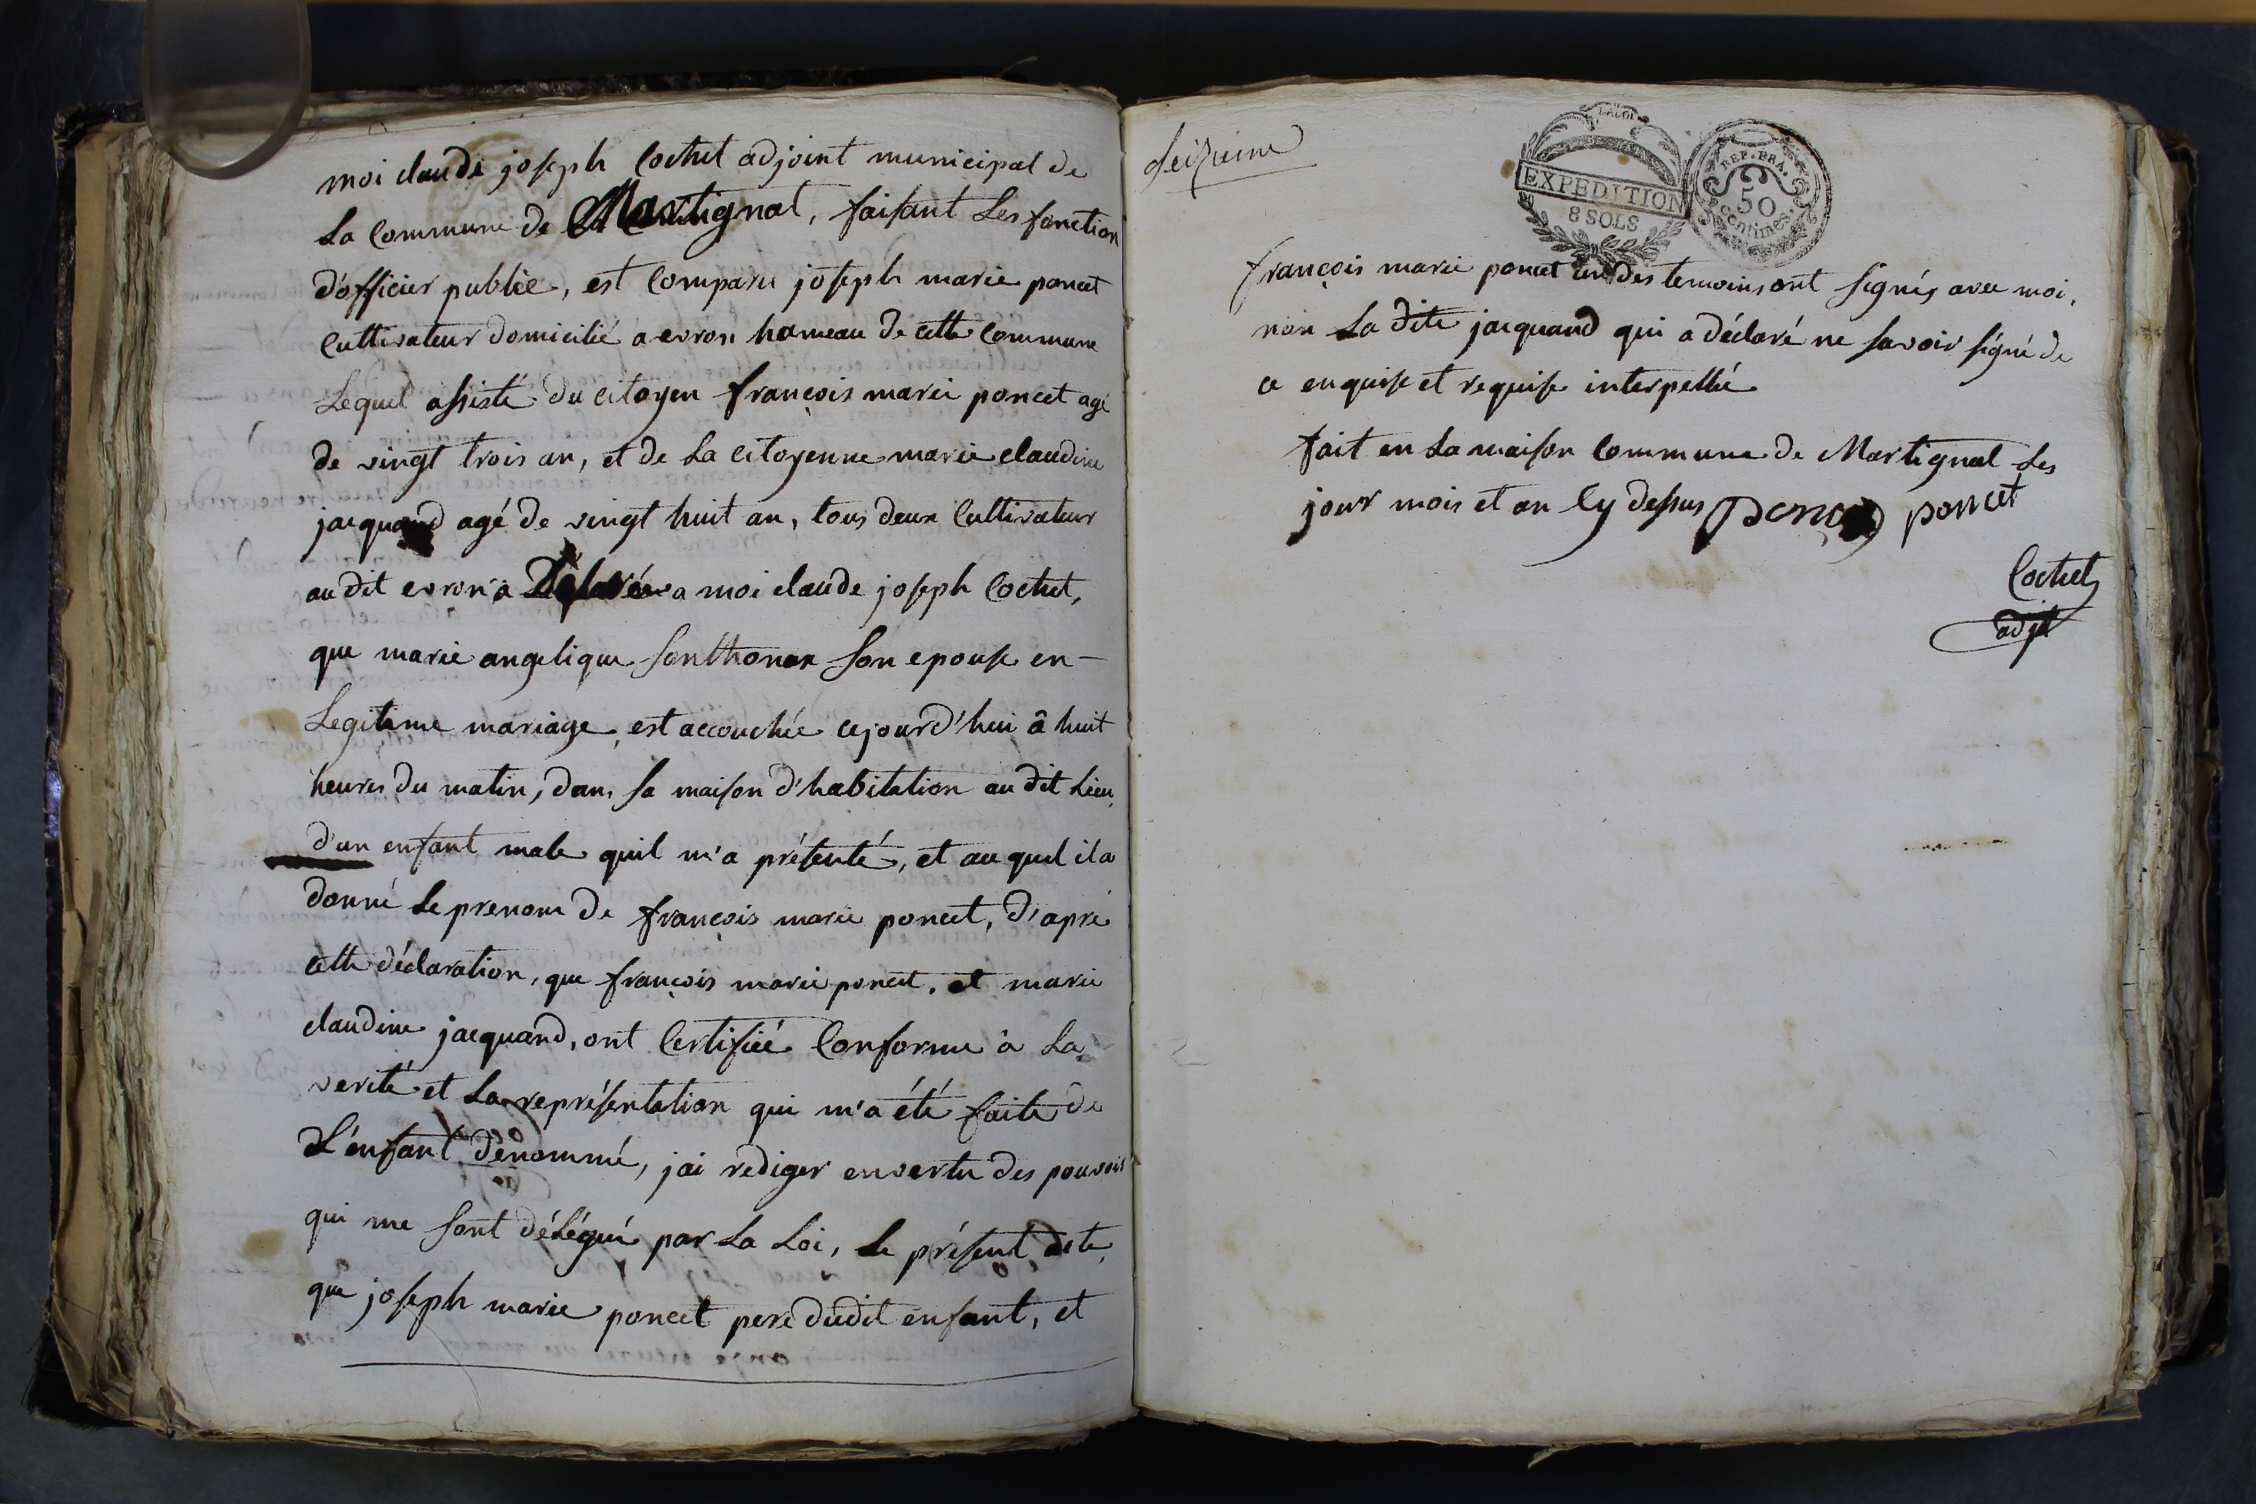 moi claude joseph Cochet adjoint municipal de
La Commune de Martignat, faisant Les fonction
d'officier publice, est Comparu joseph marie poncet
Cultivateur domicilié a evron hameau de cette Commune
Lequel assisté du citoyen françois marie poncet agé
de vingt trois an, et de La citoyenne marie claudine
jacquand agé de vingt huit an, tous deux Cultivateur
au dit evron a Déclaré a moi claude joseph Cochet,
que marie angelique Sonthonax son epouse en-
Legitime mariage, est accouchée cejourd'hui â huit
heures du matin, dans sa maison d'habitation au dit Lieu,
d'un enfant male quil m'a présenté, et au quel il a
donné Le prenom de françois marie poncet, d'apré
cette déclaration, que françois marie poncet, et marie
claudine jacquand, ont Certifiée Conforme â La
verité et La représentation qui m'a été faite de
L'enfant dénommé, jai rediger en vertu des pouvoir
qui me sont délégué par La Loi, Le présent acte,
que joseph marie poncet pere dudit enfant, et
seizieme
LA LOI
EXPEDITION
8 SOLS
REP. FRA.
50
centimes.
françois marie poncet un des temoins ont signés avec moi,
non La dite jacquand qui a déclaré ne savoir signé de
ce enquise et requise interpellé
fait en La maison Commune de Martignat Les
jour mois et an Cy dessus Poncet poncet
Cochet
adjt